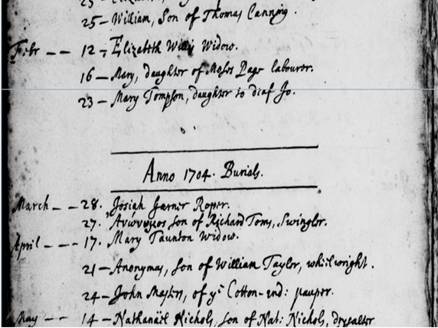 25 - William, Son of Thomas Canning.
Febr - - 12 - Elizabeth Widow.
16 - Mary, daughter of Moses Page labourer.
23 - Mary Tompson, daughter to diaf Jo.
Anno 1704. Burials.
March - - 28. Josiah Garner Roper.
27. Ἀνώνυμος Son of Richard Toms, Swingler.
April - - - 17. Mary Taunton Widow.
21 - Anonymas, Son of William Taylor, whilwright.
24 - John of yᵉ Cotton-end: pauper.
May - - 14 - Nathaniel Nichols, Son of Nat: Nichols, drysalter